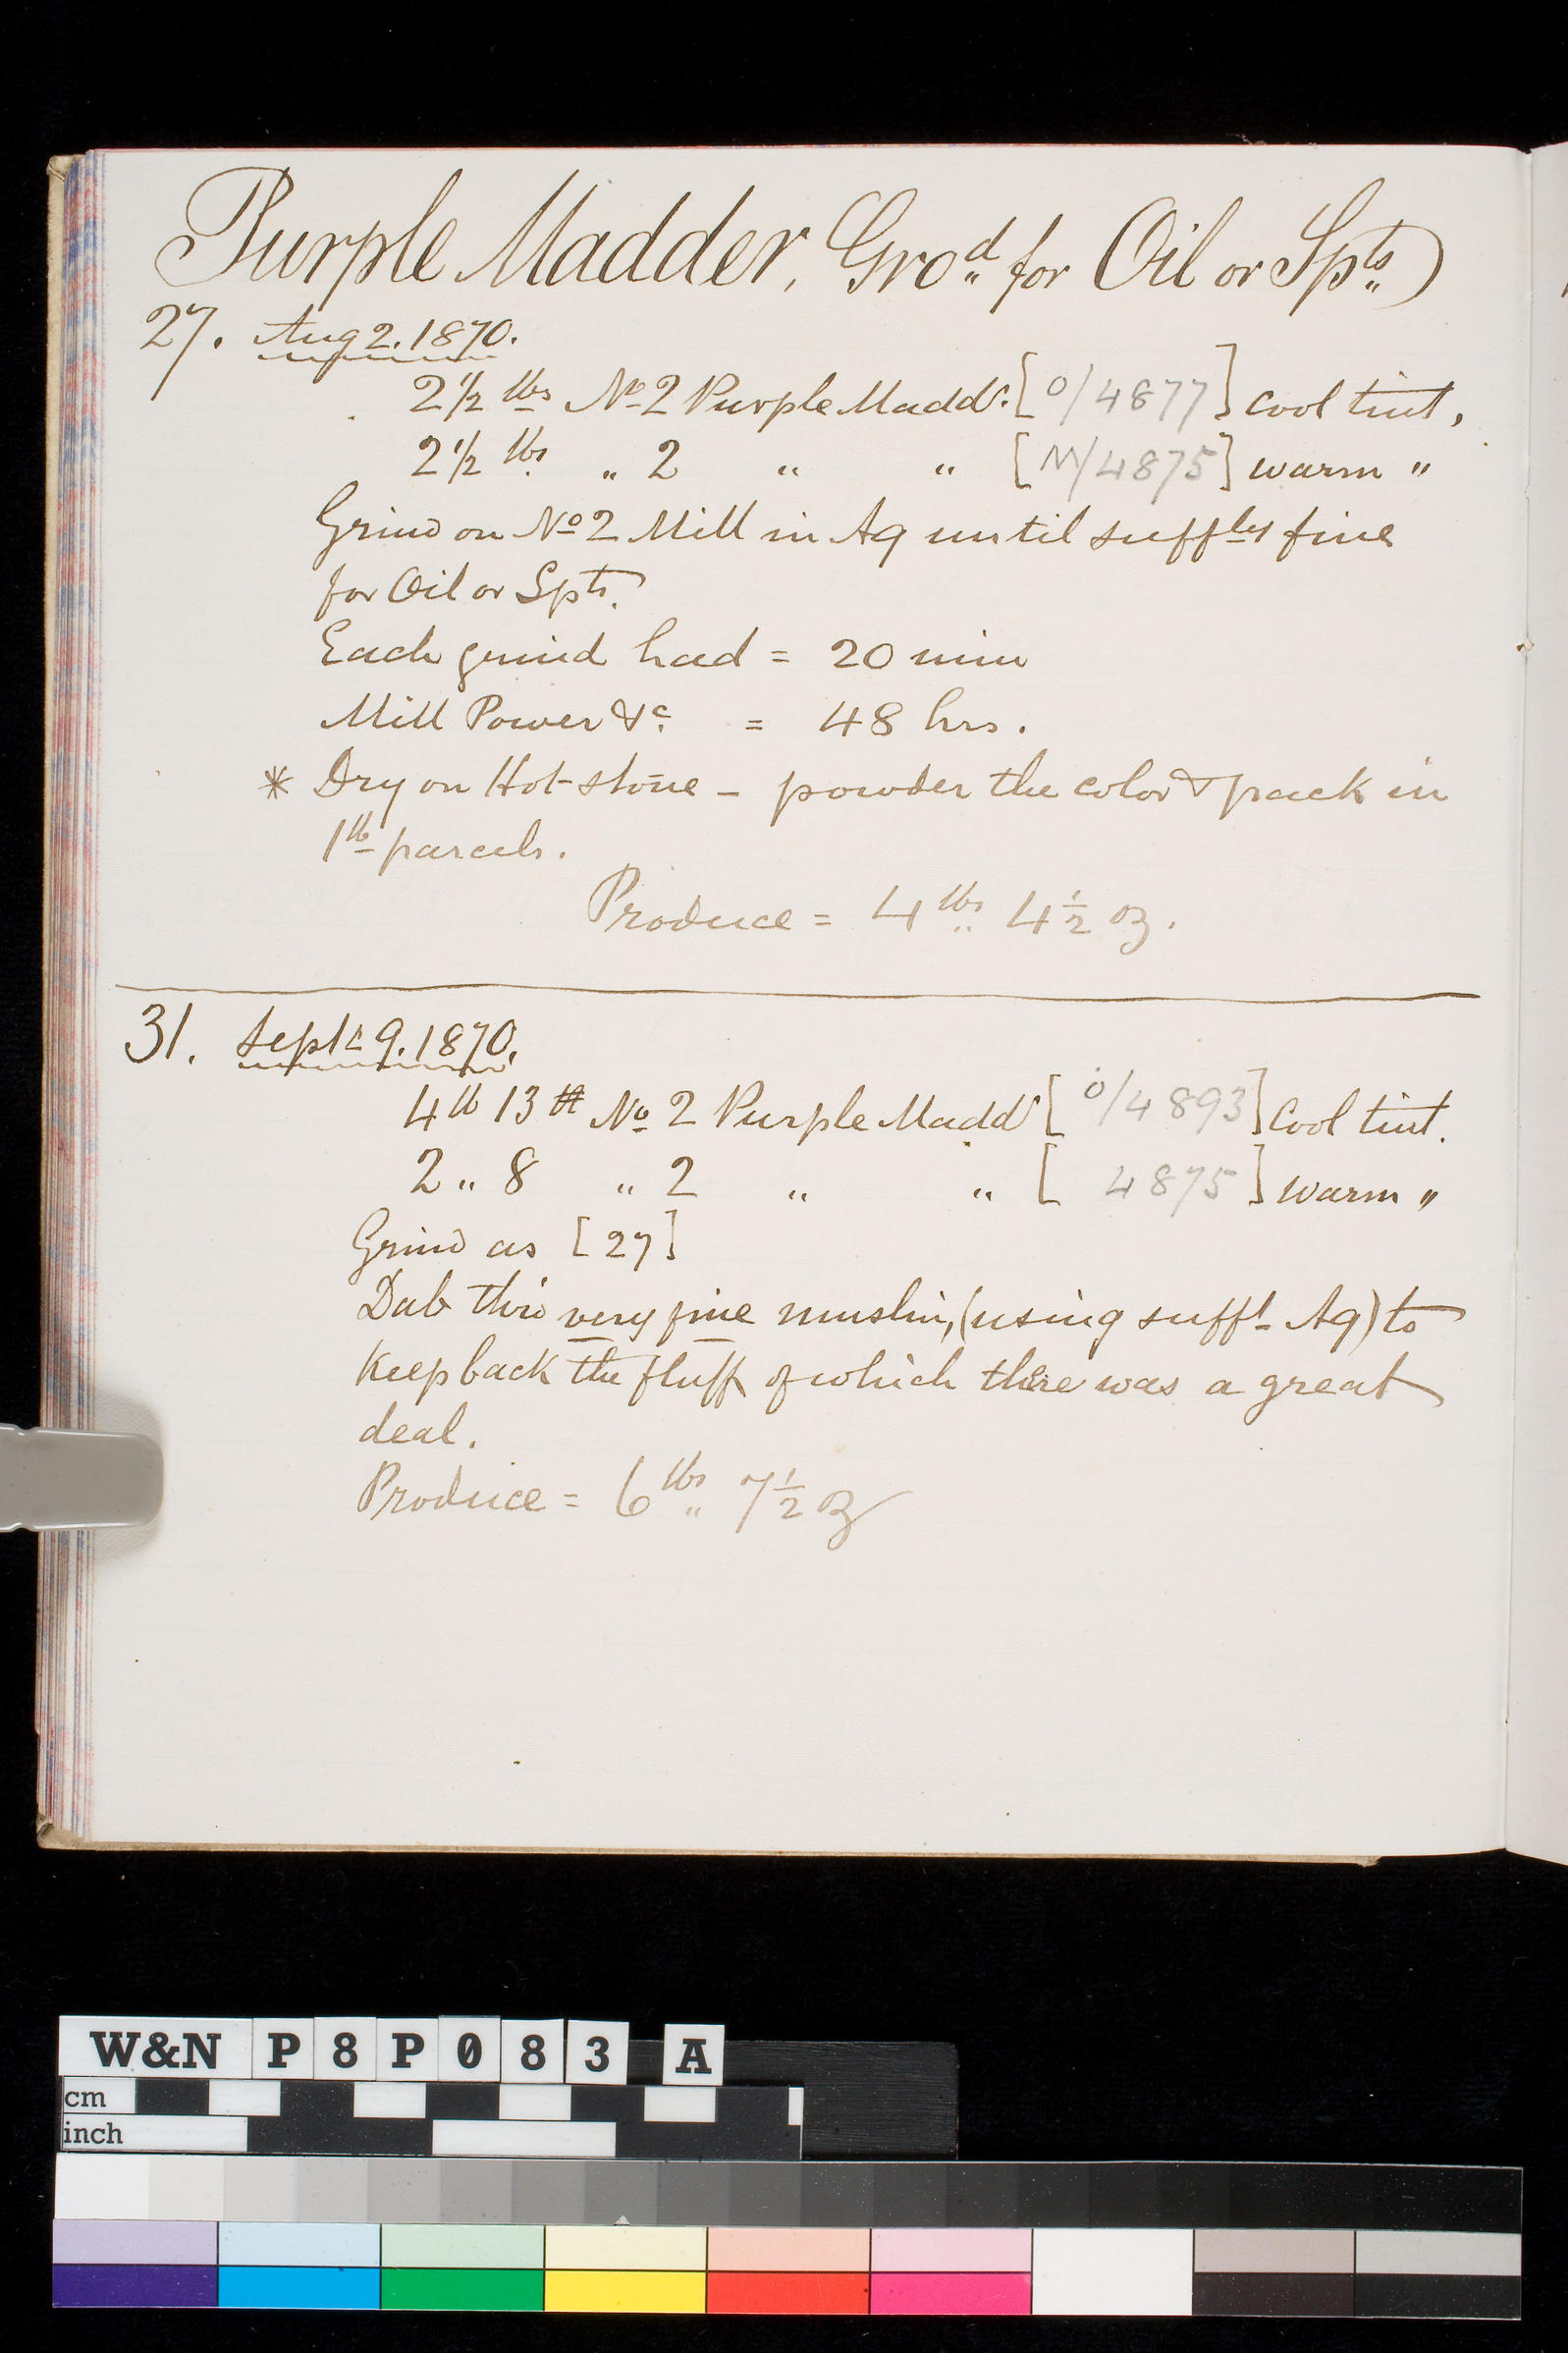 Purple Madder, Gro.d for Oil or Spts)
27. Aug 2. 1870.
2 1/2 lbs No 2 Purple Maddr. [O/4877] Cool tint,
2 1/2 lbs „ 2 „ „ [M/4875] warm "
Grind on No 2 Mill in Aq until suffly fine
for Oil or Spts.
Each grind had = 20 min
Mill Power &c. = 48 hrs.
* Dry on Hot-stone – powder the color & pack in
1 lb parcels.
Produce = 4 lbs 4 1/2 oz.
31. Septr 9. 1870.
4 lb 13 No 2 Purple Maddr [O/4893] Cool tint.
2 „ 8 „ 2 „ „ [ 4875] warm "
Grind as [27]
Dab thro very fine muslin, (using sufft Aq) to
Keep back the fluff of which there was a great
deal.
Produce = 6 lbs 7 1/2 oz
W&N P8P083 A
cm
inch